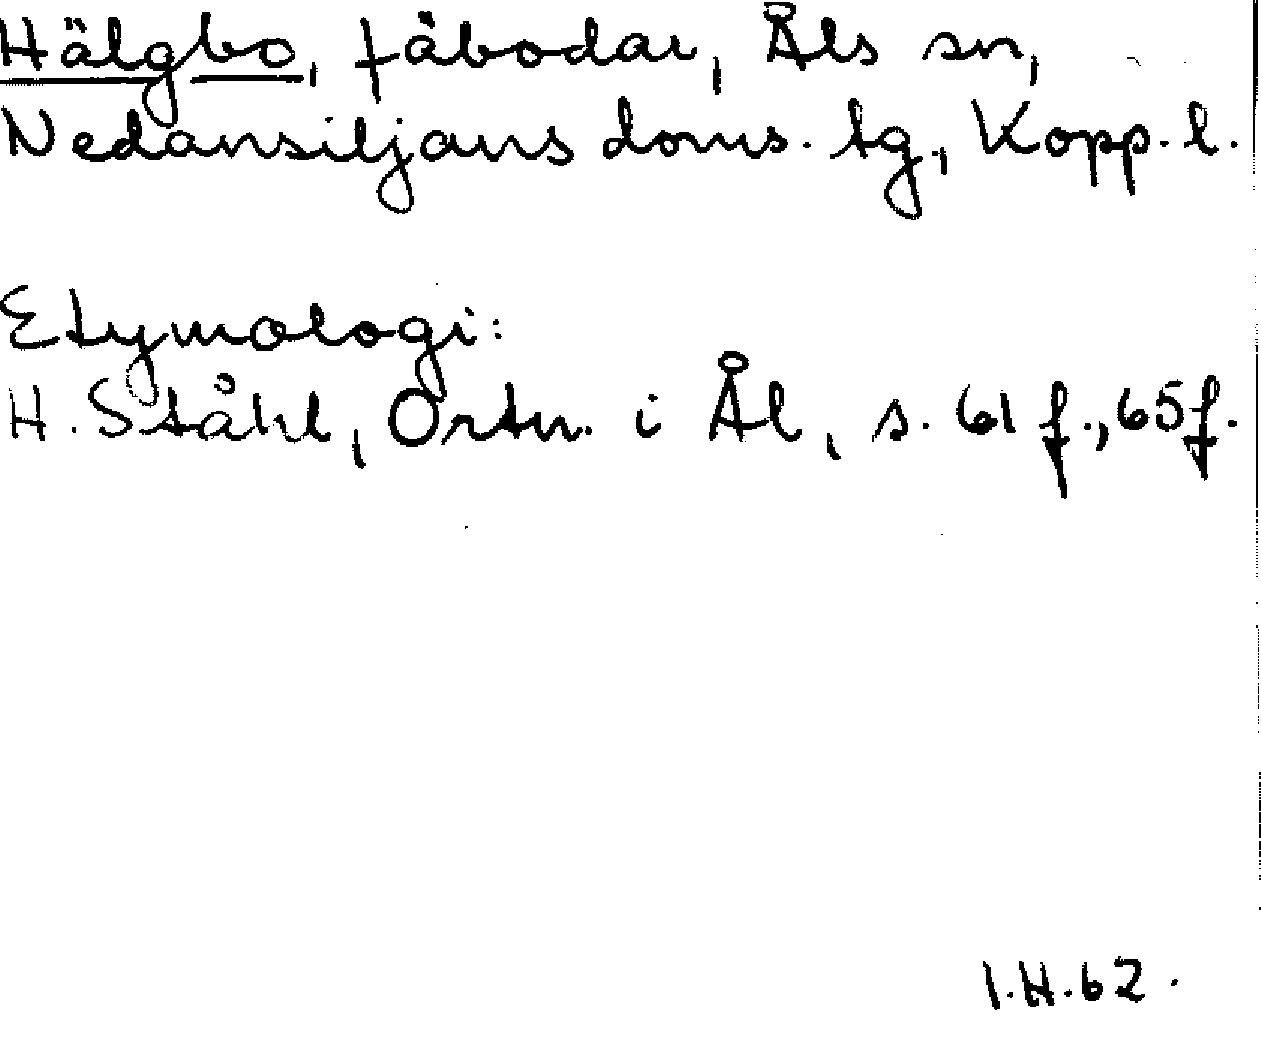 Hälgbo, fäbodar, Åls sn,
Nedansiljans doms. tg., Kopp. l.
Etymologi:
H. Ståhl, Ortn. i Ål, s. 61 f., 65 f.
I.H.62.